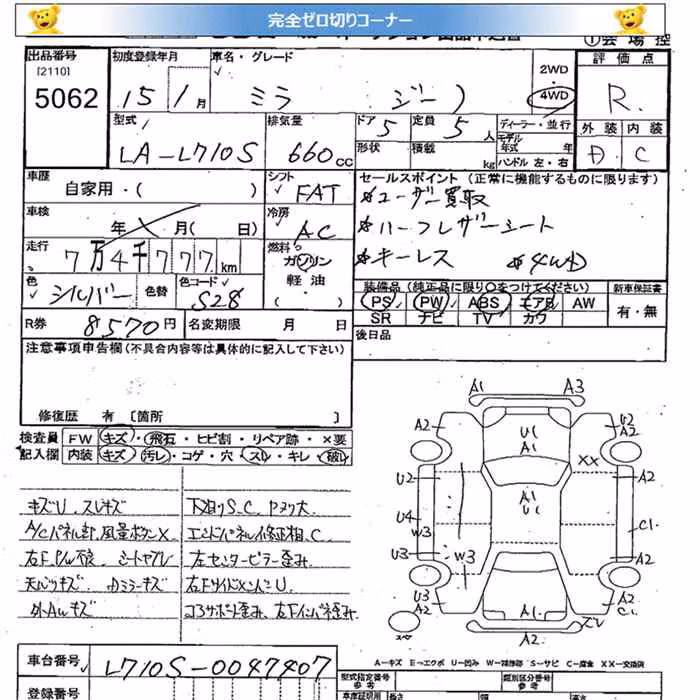 完全ゼロ切りコーナー
① 会場控
出品番号 [2110] 5062
初度登録年月 15/1月
車名・グレード ミラ ジーノ
2WD 4WD
評価点 R.
型式 LA-L710S
排気量 660cc
ドア 5 定員 5人
形状 積載 kg
ディーラー・並行
モデル年式 年
ハンドル 左・右
外装 内装
D. C
車歴 自家用・( )
シフト FAT
車検 年 月( 日)
冷房 AC
走行 7万4千777km
燃料 ガソリン 軽油 ( )
色 シルバー 色替 色コード S28
R券 8570円 名変期限 月 日
セールスポイント(正常に機能するものに限ります)
*ユーザー買取
*ハーフレザーシート
*キーレス *4WD
装備品(純正品に限り○をつけてください) 新車保証書
PS PW ABS エアB AW 有・無
SR ナビ TV カワ
後日品
注意事項申告欄(不具合内容等は具体的に記入して下さい)
修復歴 有 [箇所 ]
検査員 FW キズ・飛石・ヒビ割・リペア跡・×要
記入欄 内装 キズ・汚レ・コゲ・穴・スレ・キレ・破レ
キズU. スレキズ 下廻りS.C.
A/Cパネル部.風量ボタンX エンドパネル修正相.C
右F.P/W不良. 左センターピラー歪み
天バリキズ Dミラーキズ 右FサイドメンバーU
外AWキズ コアサポート歪み. 右Fインパネ歪み
A1 A3
A2 U1 A1 U2 A2
XX
U2 A1 U1 A2
U4 W3 C1
U3 W3 A2
U3 A2 A1 A2 C1
A2
A―キズ E―エクボ U―凹み W―補修跡 S―サビ C―腐食 XX―交換済
車台番号 L710S-0047407
型式指定番号 類別区分番号
参考 参考
登録番号